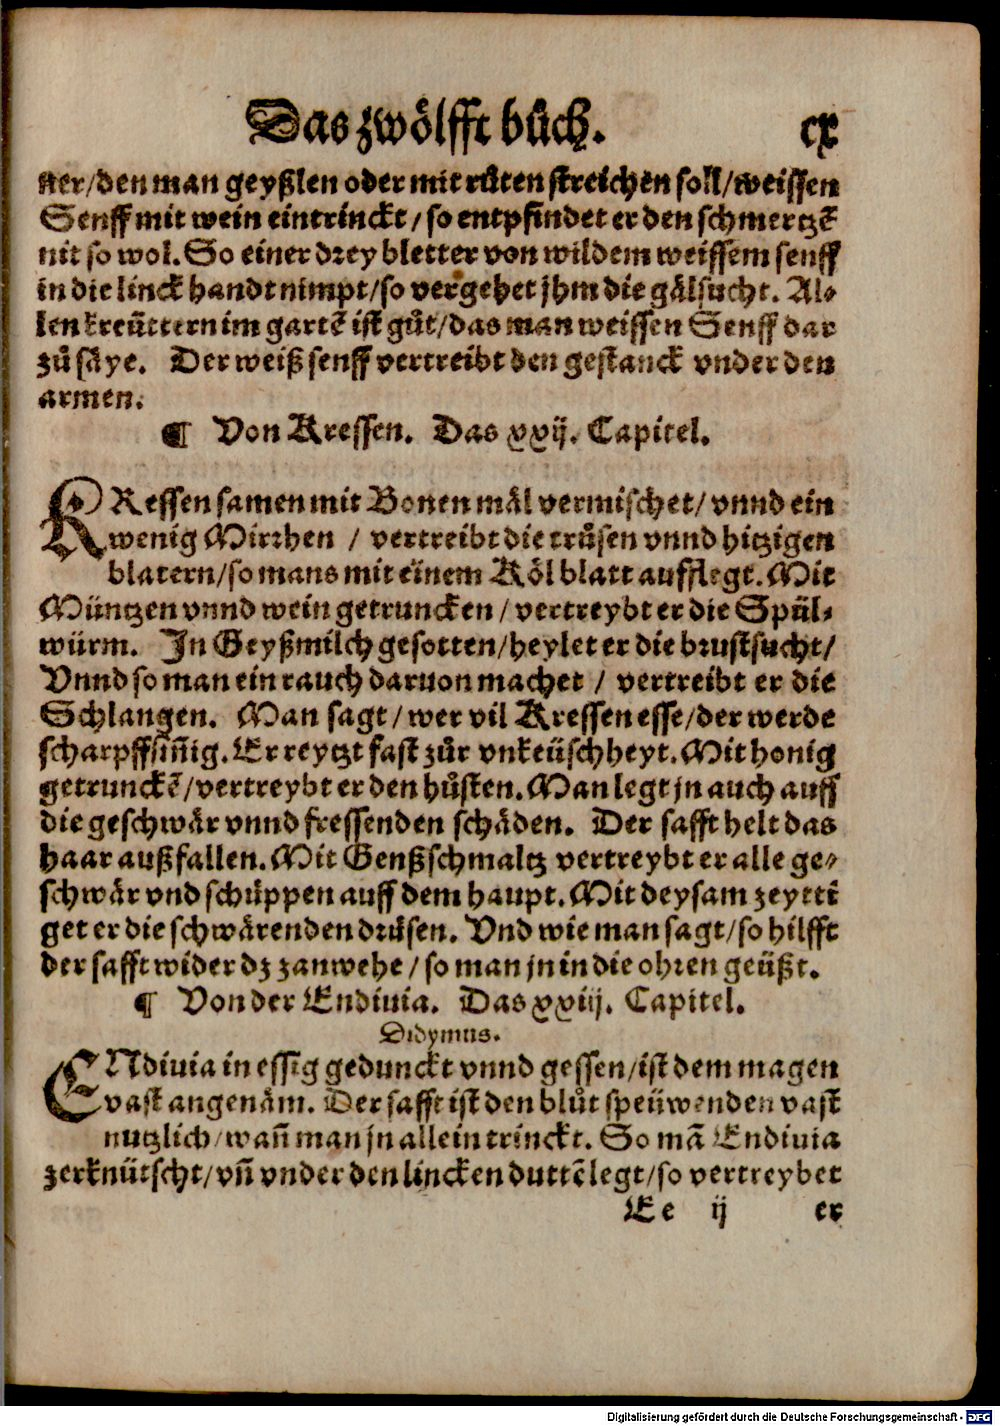 Das zwölfft bůch. cx
ner/den man geyßlen oder mit růten streichen soll/weissen
Senff mit wein eintrinckt/so entpfindet er den schmertzẽ
nit so wol. So einer drey bletter von wildem weissem senff
in die linck handt nimpt/so vergehet jhm die gälsucht. Al-
len kreüttern im gartẽ ist gůt/das man weissen Senff dar
zů säye. Der weiß senff vertreibt den gestanck vnder den
armen.
¶ Von Kressen. Das xxij. Capitel.
KRessen samen mit Bonen mäl vermischet/vnnd ein
wenig Mirrhen / vertreibt die trůsen vnnd hitzigen
blatern/so mans mit einem Köl blatt aufflegt. Mit
Müntzen vnnd wein getruncken/vertreybt er die Spül-
würm. In Geyßmilch gesotten/heylet er die brustsucht/
Vnnd so man ein rauch daruon machet / vertreibt er die
Schlangen. Man sagt/wer vil Kressen esse/der werde
scharpffsiñig. Er reytzt fast zůr vnkeüschheyt. Mit honig
getrunckẽ/vertreybt er den hůsten. Man legt jn auch auff
die geschwär vnnd fressenden schäden. Der safft helt das
haar außfallen. Mit Genßschmaltz vertreybt er alle ge-
schwär vnd schüppen auff dem haupt. Mit deysam zeytti
get er die schwärenden drůsen. Vnd wie man sagt/so hilfft
der safft wider dz zanwehe/so man jn in die ohren geüßt.
¶ Von der Endiuia. Das xxiij. Capitel.
Didymus.
ENdiuia in essig gedunckt vnnd gessen/ist dem magen
vast angenäm. Der safft ist den blůt speüwenden vast
nutzlich/wañ man jn allein trinckt. So mã Endiuia
zerknütscht/vñ vnder den lincken duttẽ legt/so vertreybet
Ee ij er
Digitalisierung gefördert durch die Deutsche Forschungsgemeinschaft - DFG